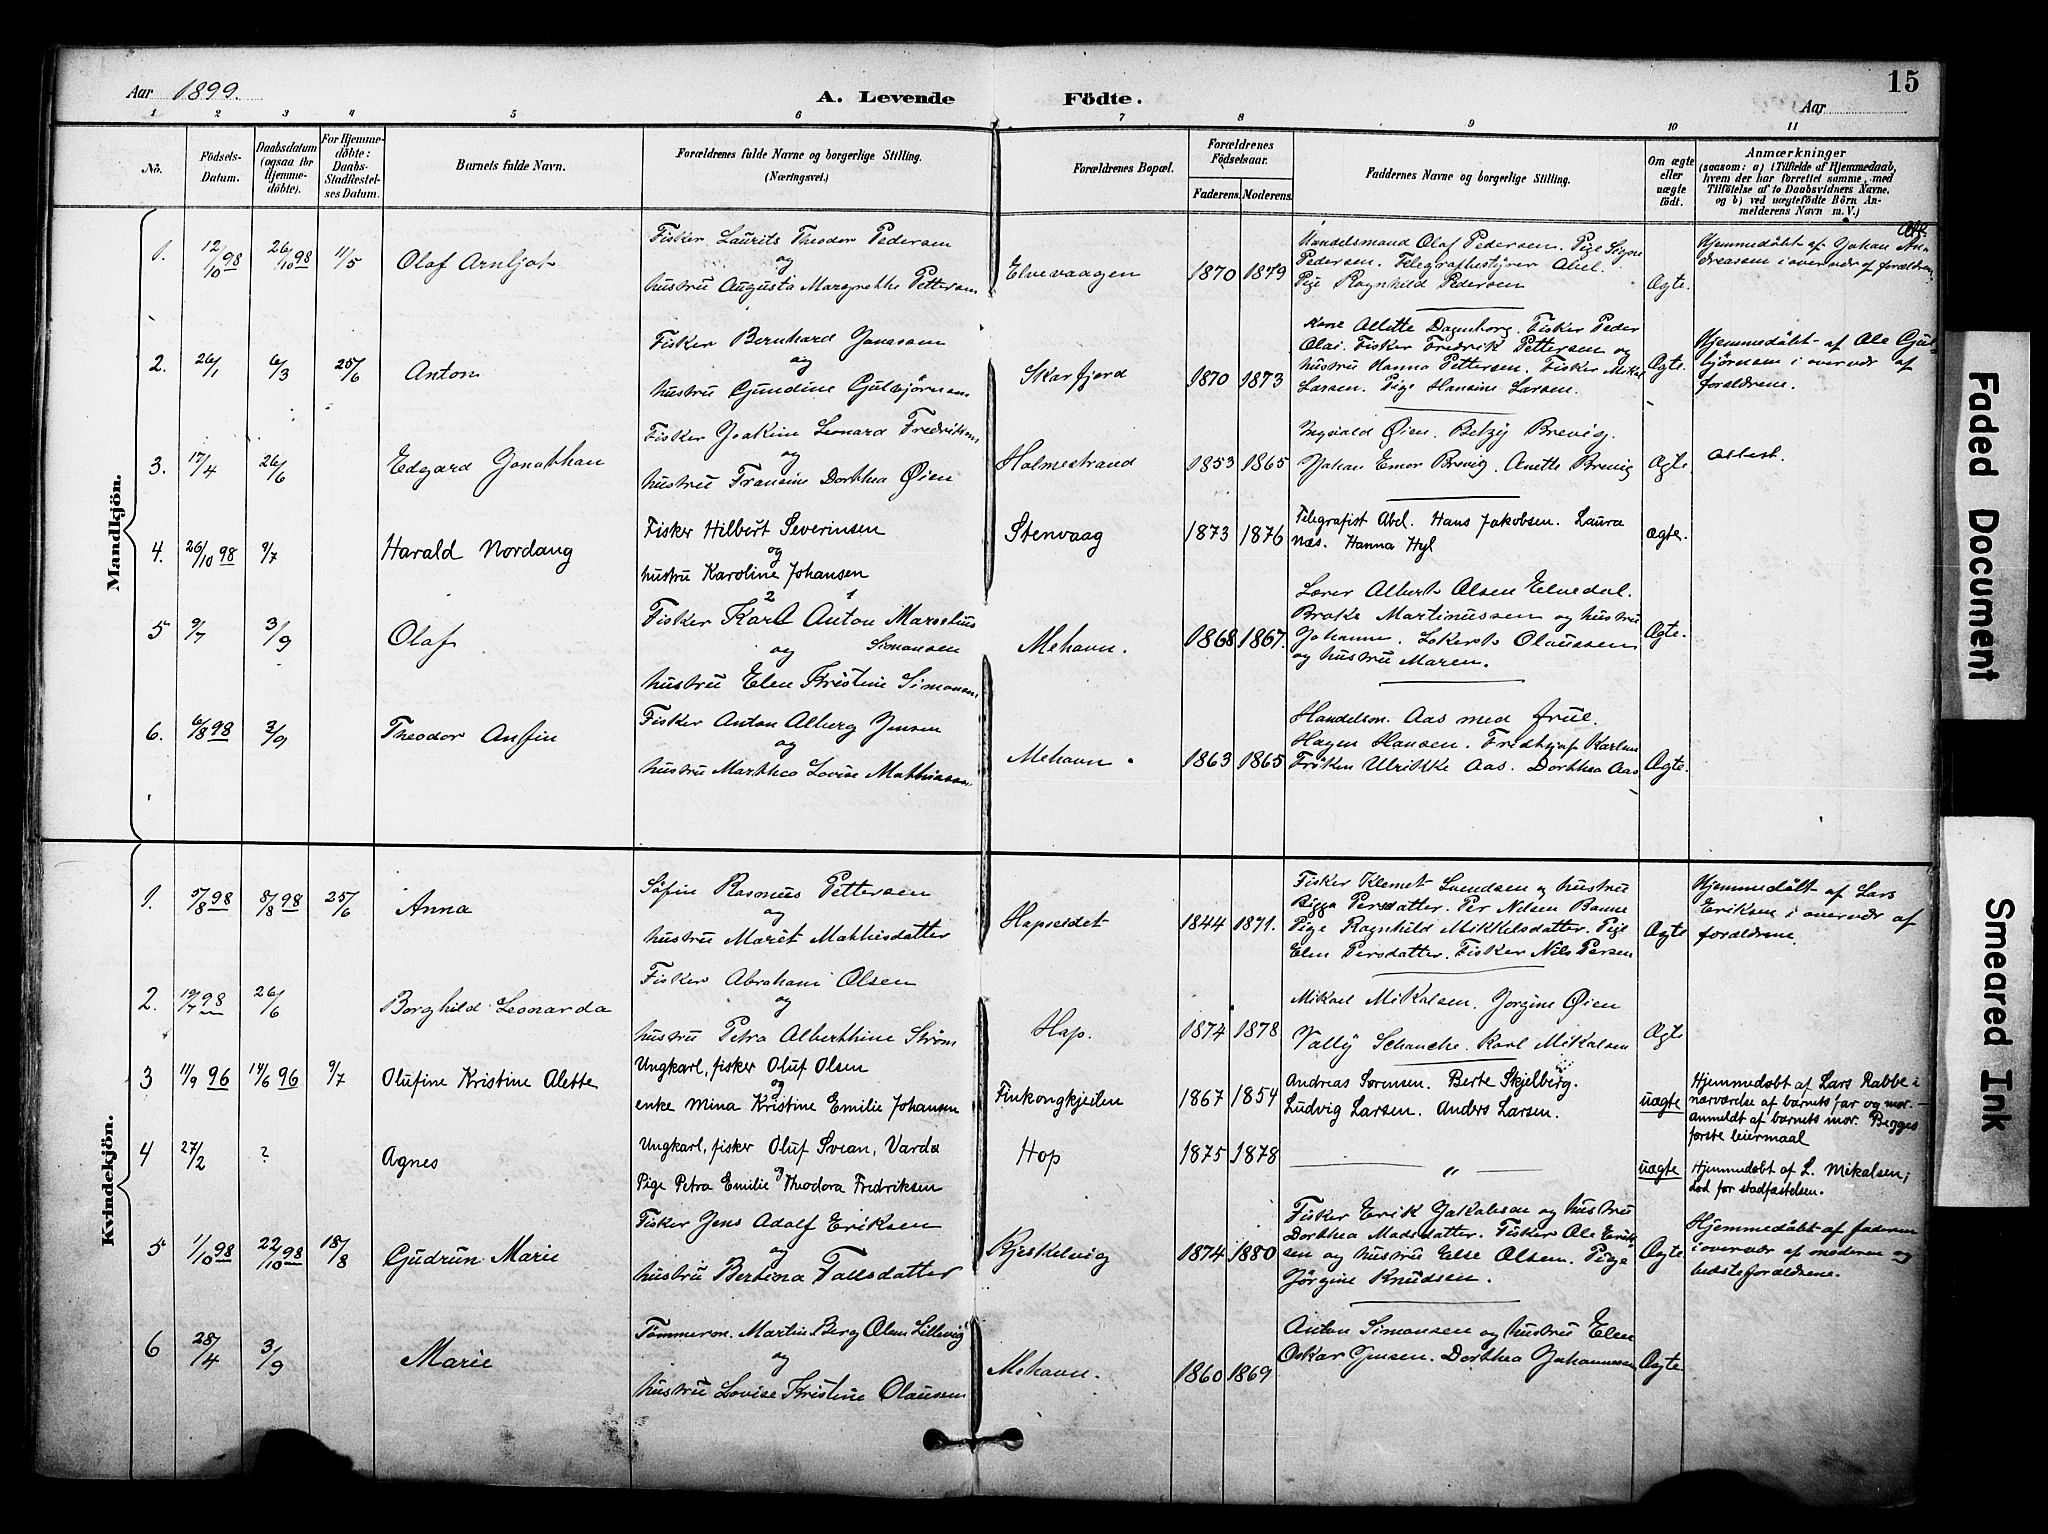 Aar 1899.
A. Levende Födte.
Aar
15
1 2 3 4 5 6 7 8 9 10 11
No.
Födsels-Datum.
Daabsdatum (ogsaa for Hjemme-döbte).
For Hjemme-döbte: Daabs-Stadfæstel-ses Datum.
Barnets fulde Navn.
Forældrenes fulde Navne og borgerlige Stilling.
(Næringsvei.)
Forældrenes Bopæl.
Forældrenes Födselsaar.
Faderens. Moderens.
Faddernes Navne og borgerlige Stilling.
Om ægte eller uægte födt.
Anmærkninger
(saasom: a) i Tilfælde af Hjemmedaab,
hvem der har forrettet samme, med
Tilföielse af to Daabsvidners Navne,
og b) ved uægtefödte Börn An-
melderens Navn m. V.)
Mandkjön.
1. 12/10 98 26/10 98 11/5 Olaf Arnljot
Fisker Laurits Theodor Pedersen
og
hustru Augusta Margrethe Pettersen
Elvevaagen 1870 1879
Handelsmand Olaf Pedersen. Pige Signe
Pedersen. Telegrafbestyrer Abel.
Pige Ragnhild Pedersen
Ægte.
Hjemmedöbt af Johan An-
dreassen i overvær af forældrene
2. 26/1 6/3 25/6 Anton
Fisker Bernhard Jonassen
og
hustru Gundine Gulbjörnsen
Skarfjord 1870 1873
Kone Alette Dagenborg. Fisker Peder
Olai. Fisker Fredrik Pettersen og
hustru Hanna Pettersen. Fisker Mikal
Larsen. Pige Hansine Larsen.
Ægte.
Hjemmedöbt af Ole Gul-
björnsen i overvær af
forældrene.
3. 17/4 26/6 Edgard Jonathan
Fisker Joakim Leonard Fredriksen
og
hustru Fransine Dorthea Øien
Holmestrand 1853 1865
Ingvald Øien. Betzy Brevig.
Johan Emor Brevig. Anette Brevig
Ægte
Attest.
4. 26/10 98 9/7 Harald Nordang
Fisker Hilbert Severinsen
og
hustru Karoline Johansen
Stenvaag 1873 1876
Telegrafist Abel. Hans Jakobsen. Laura
Næs. Hanna Hyl
ægte.
5 9/7 3/9 Olaf
2 1
Fisker Karl Anton Marselius
og Simonsen
hustru Elen Kristine Simonsen
Mehavn. 1868 1867.
Lærer Albert Olsen Elvedal.
Brake Martinussen og hustru
Johanne. Lokerts Olaussen
og hustru Maren.
Ægte.
6. 6/8 98 3/9 Theodor Anfin
Fisker Anton Alberg Jensen
og
hustru Marthea Lovise Mathiassen
Mehavn. 1863 1865
Handelsm. Aas med frue.
Hagen Hansen. Fredhjof Karlsen
Fröken Ulrikke Aas. Dorthea Aas
Ægte.
Kvindekjön.
1. 5/8 98 8/8 98 25/6 Anna
Söfin Rasmus Pettersen
og
hustru Maret Mathisdatter
Hopseidet 1844 1871.
Fisker Klemet Svendsen og hustru
Bigga Persdatter. Per Nilsen Banne
Pige Ragnhild Mikkelsdatter. Pige
Elen Persdatter. Fisker Nils Persen
Ægte
Hjemmedöbt af Lars
Eriksen i overvær af
forældrene.
2. 19/7 98 26/6 Borghild Leonarda
Fisker Abraham Olsen
og
hustru Petra Alberthine Ström
Hop. 1874 1878
Mikael Mikalsen. Jorgine Øien
Vally Schanche. Karl Mikalsen
Ægte
3 11/9 96 14/6 96 9/7 Olufine Kristine Alette
Ungkarl, fisker Oluf Olsen
og
enke Mina Kristine Emilie Johansen
Finkongkjeilen 1867 1854
Andreas Sørensen. Berte Skjelberg.
Ludvig Larsen. Anders Larsen.
uægte
Hjemmedøbt af Lars Rabbe i
nærværelse af barnets far og mor.
anmeldt af barnets mor. Begges
første leiermaal
4 27/2 ? Agnes
Ungkarl, fisker Oluf Svean, Vardø
og
Pige Petra Emilie Theodora Fredriksen
Hop 1875 1878
— " —
uægte
Hjemmedøbt af L. Mikalsen;
død før stadfæstelsen.
5 1/10 98 22/10 98 18/8 Gudrun Marie
Fisker Jens Adolf Eriksen
og
hustru Bertina Fallsdatter
Kjeskelvig 1874 1880
Fisker Erik Jakobsen og hustru
Dorthea Madsdatter. Fisker Ole Erik-
sen og hustru Else Olsen. Pige
Jörgine Knudsen.
Ægte
Hjemmedöbt af faderen
i overvær af moderen og
bedsteforældrene.
6 28/4 3/9 Marie
Tömmerm. Martin Berg Olsen Lillevig
og
hustru Lovise Kristine Olaussen
Mehavn. 1860 1869
Anton Simonsen og hustru Elen
Oskar Jensen. Dorthea Johannessen
Ægte.
Faded Document
Smeared Ink